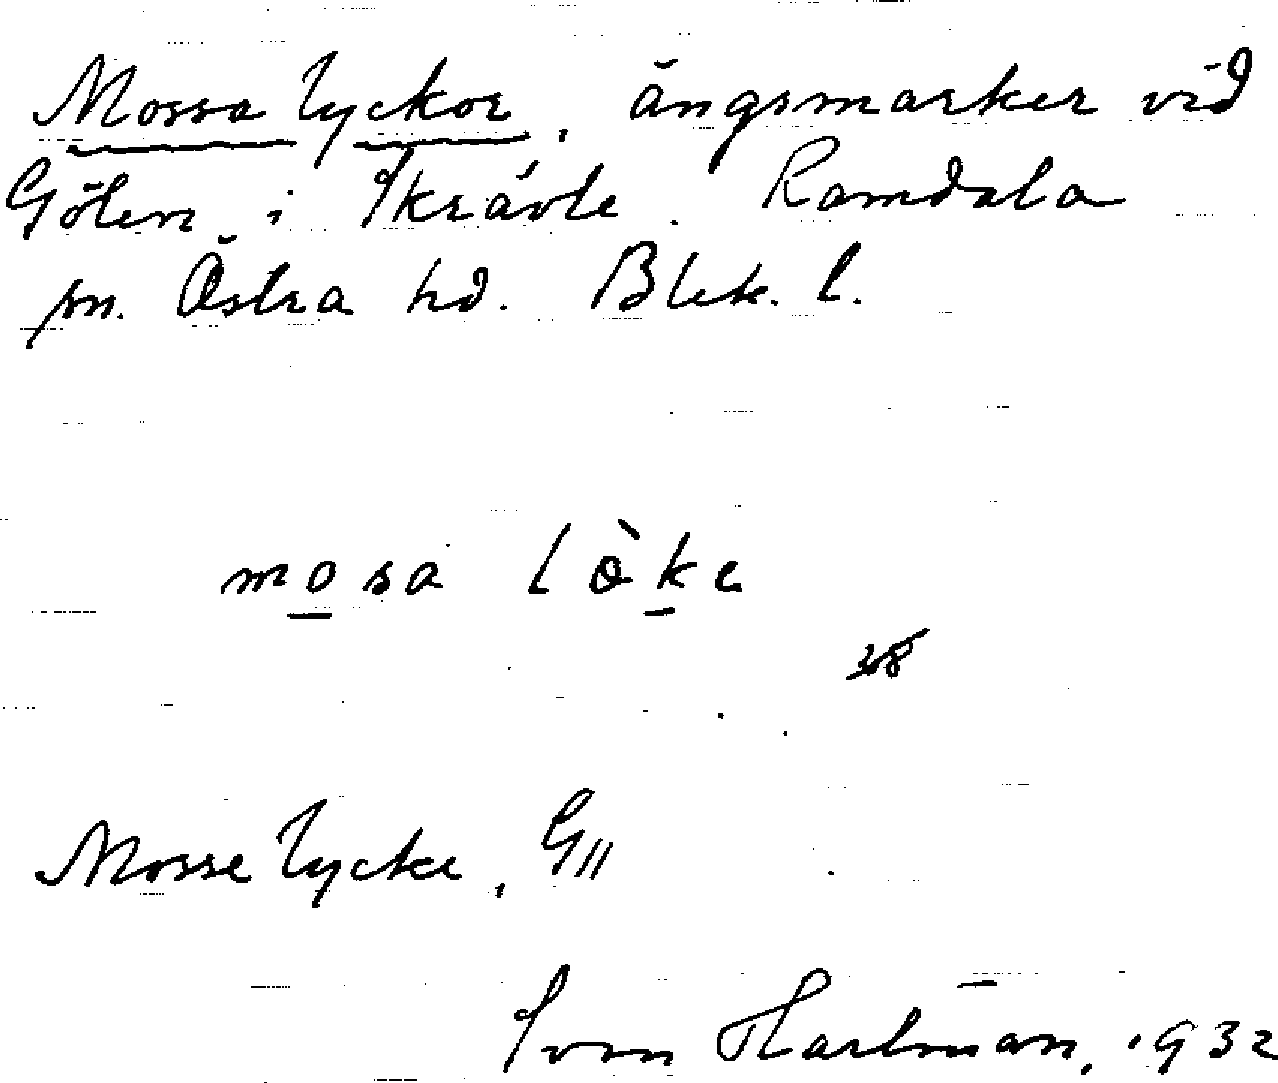 Mossa lyckor, ängsmarker vid
Gölen i Skrävle. Ramdala
sn. Östra hd. Blek. l.
mosa lòke
Mosse lycke, G//
Sven Hartman, 1932